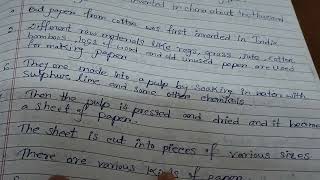 invented in china about two thousand
But paper from cotton was first invented in India
Different raw materials like rags, grass, jute, cotton
bamboos, logs of wood and old unused paper are used
for making paper
They are made into a pulp by soaking in water with
sulphur lime and some other chemicals
Then the pulp is pressed and dried and it becomes
a sheet of paper.
The sheet is cut into pieces of various sizes
There are various kinds of paper